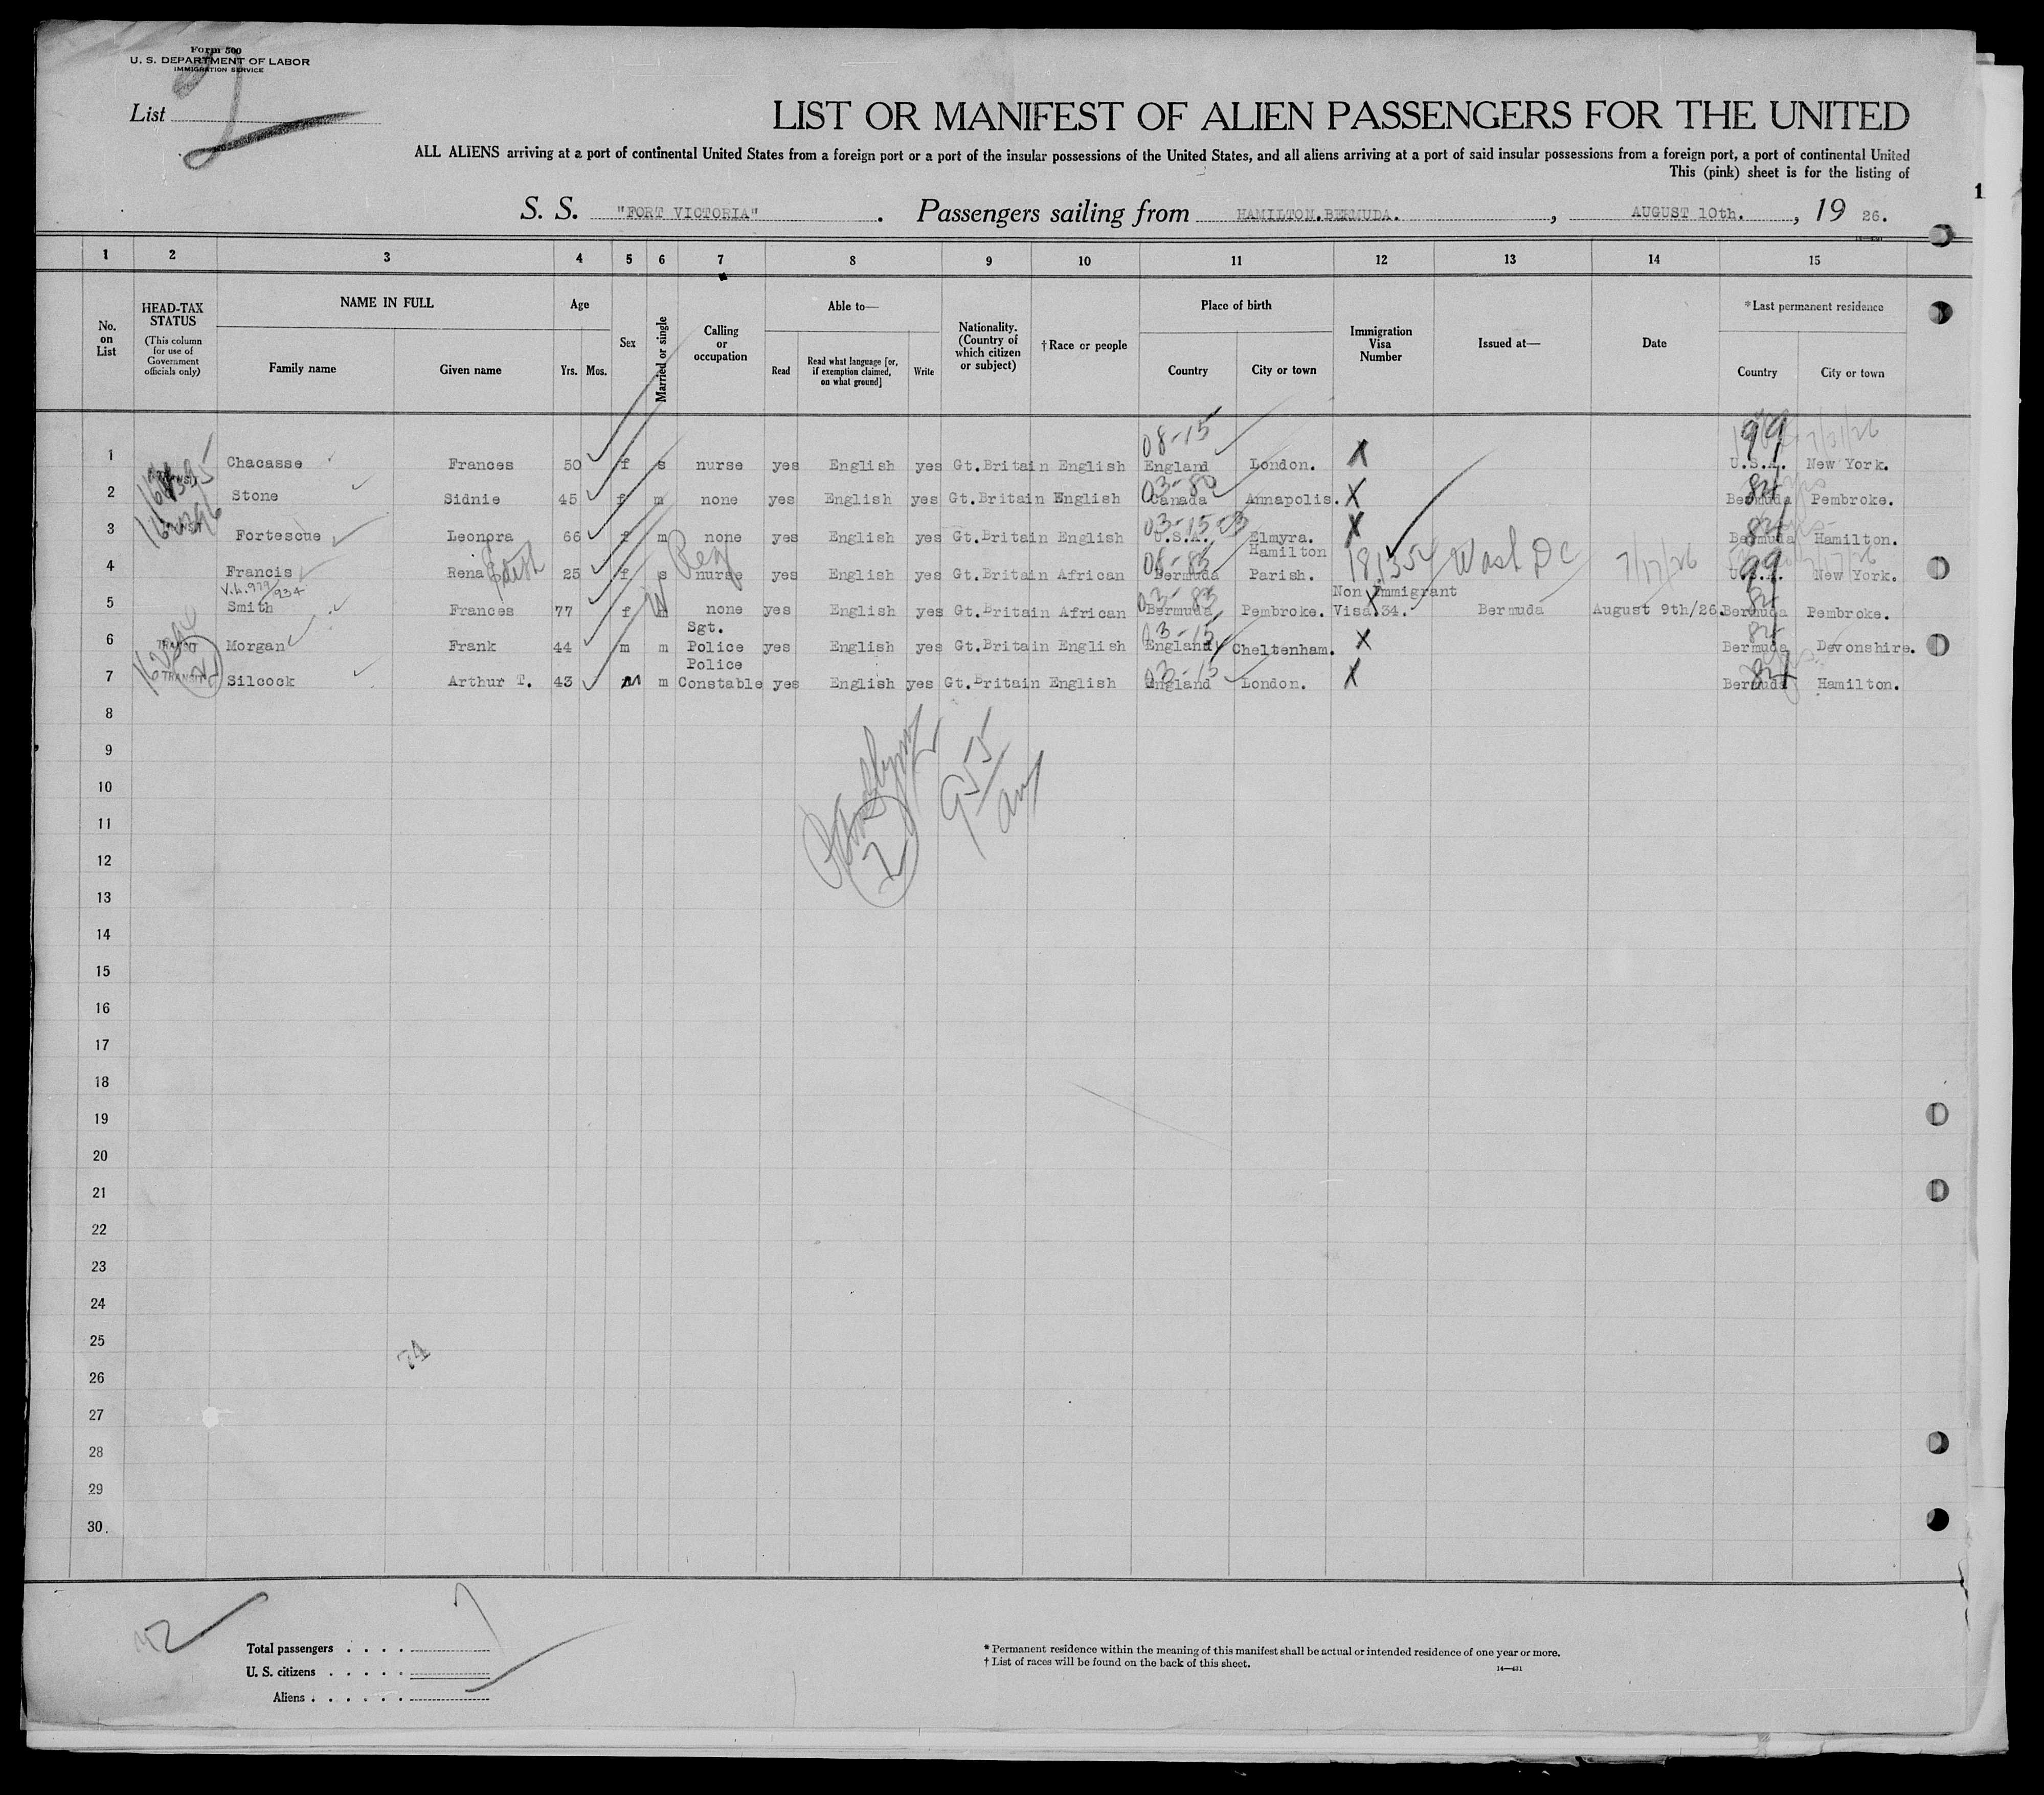 Form 500
U. S. DEPARTMENT OF LABOR
IMMIGRATION SERVICE
List
LIST OR MANIFEST OF ALIEN PASSENGERS FOR THE UNITED
ALL ALIENS arriving at a port of continental United States from a foreign port or a port of the insular possessions of the United States, and all aliens arriving at a port of said insular possessions from a foreign port, a port of continental United
This (pink) sheet is for the listing of
1
S. S. "FORT VICTORIA". Passengers sailing from HAMILTON.BERMUDA., AUGUST 10th., 19 26.
1 2 3 4 5 6 7 8 9 10 11 12 13 14 15
No. on List
HEAD-TAX STATUS (This column for use of Government officials only)
NAME IN FULL Family name Given name
Age Yrs. Mos.
Sex
Married or single
Calling or occupation
Able to— Read Read what language [or, if exemption claimed, on what ground] Write
Nationality. (Country of which citizen or subject)
† Race or people
Place of birth Country City or town
Immigration Visa Number
Issued at—
Date
*Last permanent residence Country City or town
08-15 99 7/31/26
1 Chacasse Frances 50 f s nurse yes English yes Gt.Britain English England London. X U.S.A. New York.
03-80
2 TRANSIT Stone Sidnie 45 f m none yes English yes Gt.Britain English Canada Annapolis. X Bermuda 84 Pembroke.
03-15-23
3 TRANSIT Fortescue Leonora 66 f m none yes English yes Gt.Britain English U.S.A. Elmyra. X Bermuda 84 Hamilton.
08-83 Hamilton
4 Francis Rena Edith 25 f s Reg nurse yes English yes Gt.Britain African Bermuda Parish. 181354 Wash DC 7/17/26 U.S.A. 99 New York.
V.L. 979/934 03-83 Non Immigrant
5 Smith Frances 77 f m W none yes English yes Gt.Britain African Bermuda Pembroke. Visa.34. Bermuda August 9th/26. Bermuda 84 Pembroke.
Sgt. 03-15
6 TRANSIT Morgan Frank 44 m m Police yes English yes Gt.Britain English England Cheltenham. X Bermuda 84 Devonshire.
Police 03-15
7 TRANSIT Silcock Arthur T. 43 m m Constable yes English yes Gt.Britain English England London. X Bermuda 84 Hamilton.
8
9
955
10
am
11
12
13
14
15
16
17
18
19
20
21
22
23
24
25
74
26
27
28
29
30.
7
Total passengers . . . .
U. S. citizens . . . . .
Aliens . . . . . .
* Permanent residence within the meaning of this manifest shall be actual or intended residence of one year or more.
† List of races will be found on the back of this sheet.
14—431